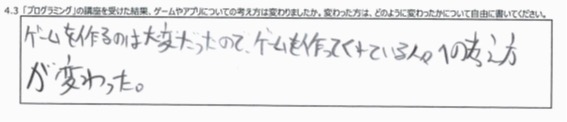 4.3「プログラミング」の講座を受けた結果、ゲームやアプリについての考え方は変わりましたか。変わった方は、どのように変わったかについて自由に書いてください。
ゲームを作るのは大変だったので、ゲームを作ってくれている人々への考え方
が変わった。